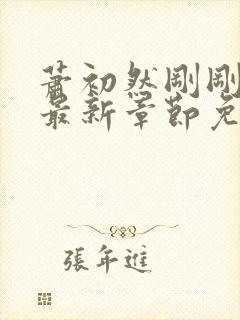 蕭初然剛剛
最新章節免
張年進